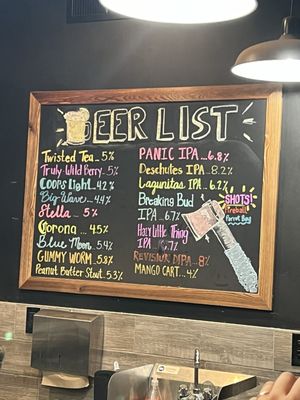 BEER LIST
Twisted Tea 5%
Truly Wild Berry 5%
Coors Light 4.2%
Big Wave 4.4%
Stella 5%
Corona 4.5%
Blue Moon 5.4%
GUMMY WORM 5.8%
Peanut Butter Stout 5.3%
PANIC IPA ... 6.8%
Deschutes IPA ... 8.2%
Lagunitas IPA ... 6.2%
Breaking Bud
IPA ... 6.7%
Hazy Little Thing
IPA ... 6.7%
REVISION DIPA ... 8%
MANGO CART ... 4%
SHOTS!
Fireball
Parrot Bay